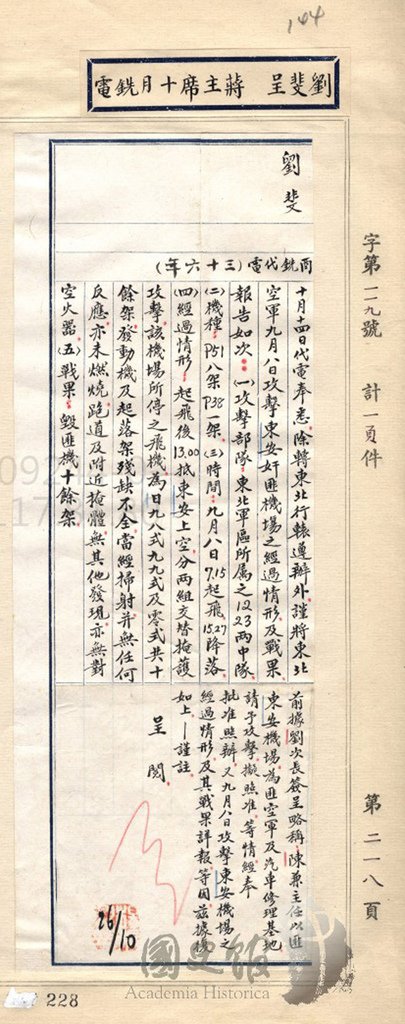 144
劉斐呈 蔣主席十月銑電
劉斐
酉銑代電(三十六年)
十月十四日代電奉悉除將東北行轅遵辦外謹將東北
空軍九月八日攻擊東安奸匪機場之經過情形及戰果
報告如次(一)攻擊部隊東北軍區所屬之12.23兩中隊
(二)機種P51八架P38一架(三)時間九月八日7.15起飛15.27降落
(四)經過情形 起飛後13.00抵東安上空分兩組交替掩護
攻擊該機場所停之飛機為日九八式九九式及零式共十
餘架發動機及起落架殘缺不全當經掃射並無任何
反應亦未燃燒跑道及附近掩體無其他發現亦無對
空火器(五)戰果 毀匪機十餘架
前據劉次長簽呈略稱陳兼主任以匪
東安機場為匪空軍及汽車修理基地
請予攻擊擬照准等情經奉
批准照辦又九月八日攻擊東安機場之
經過情形及其戰果詳報等因茲據復
如上—謹註
呈 閱
26/10
字第一一九號 計一頁件
第二一八頁
國史館
Academia Historica
228